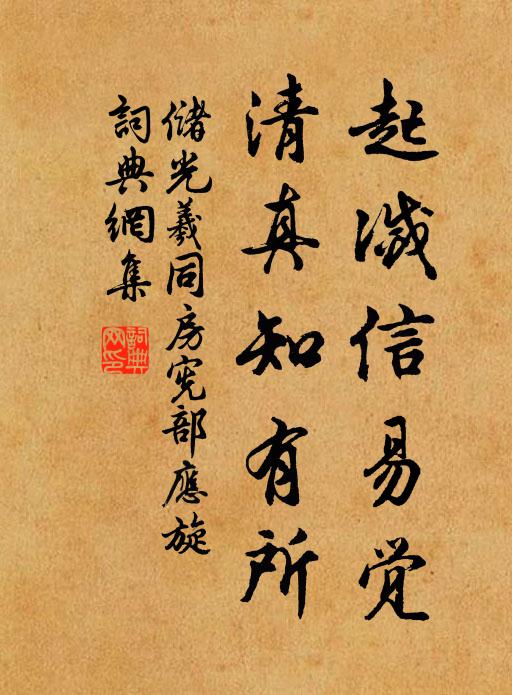 起滅信易觉
清真知有所
儲光羲同房宪部應旋
詞典網集
詞典网印